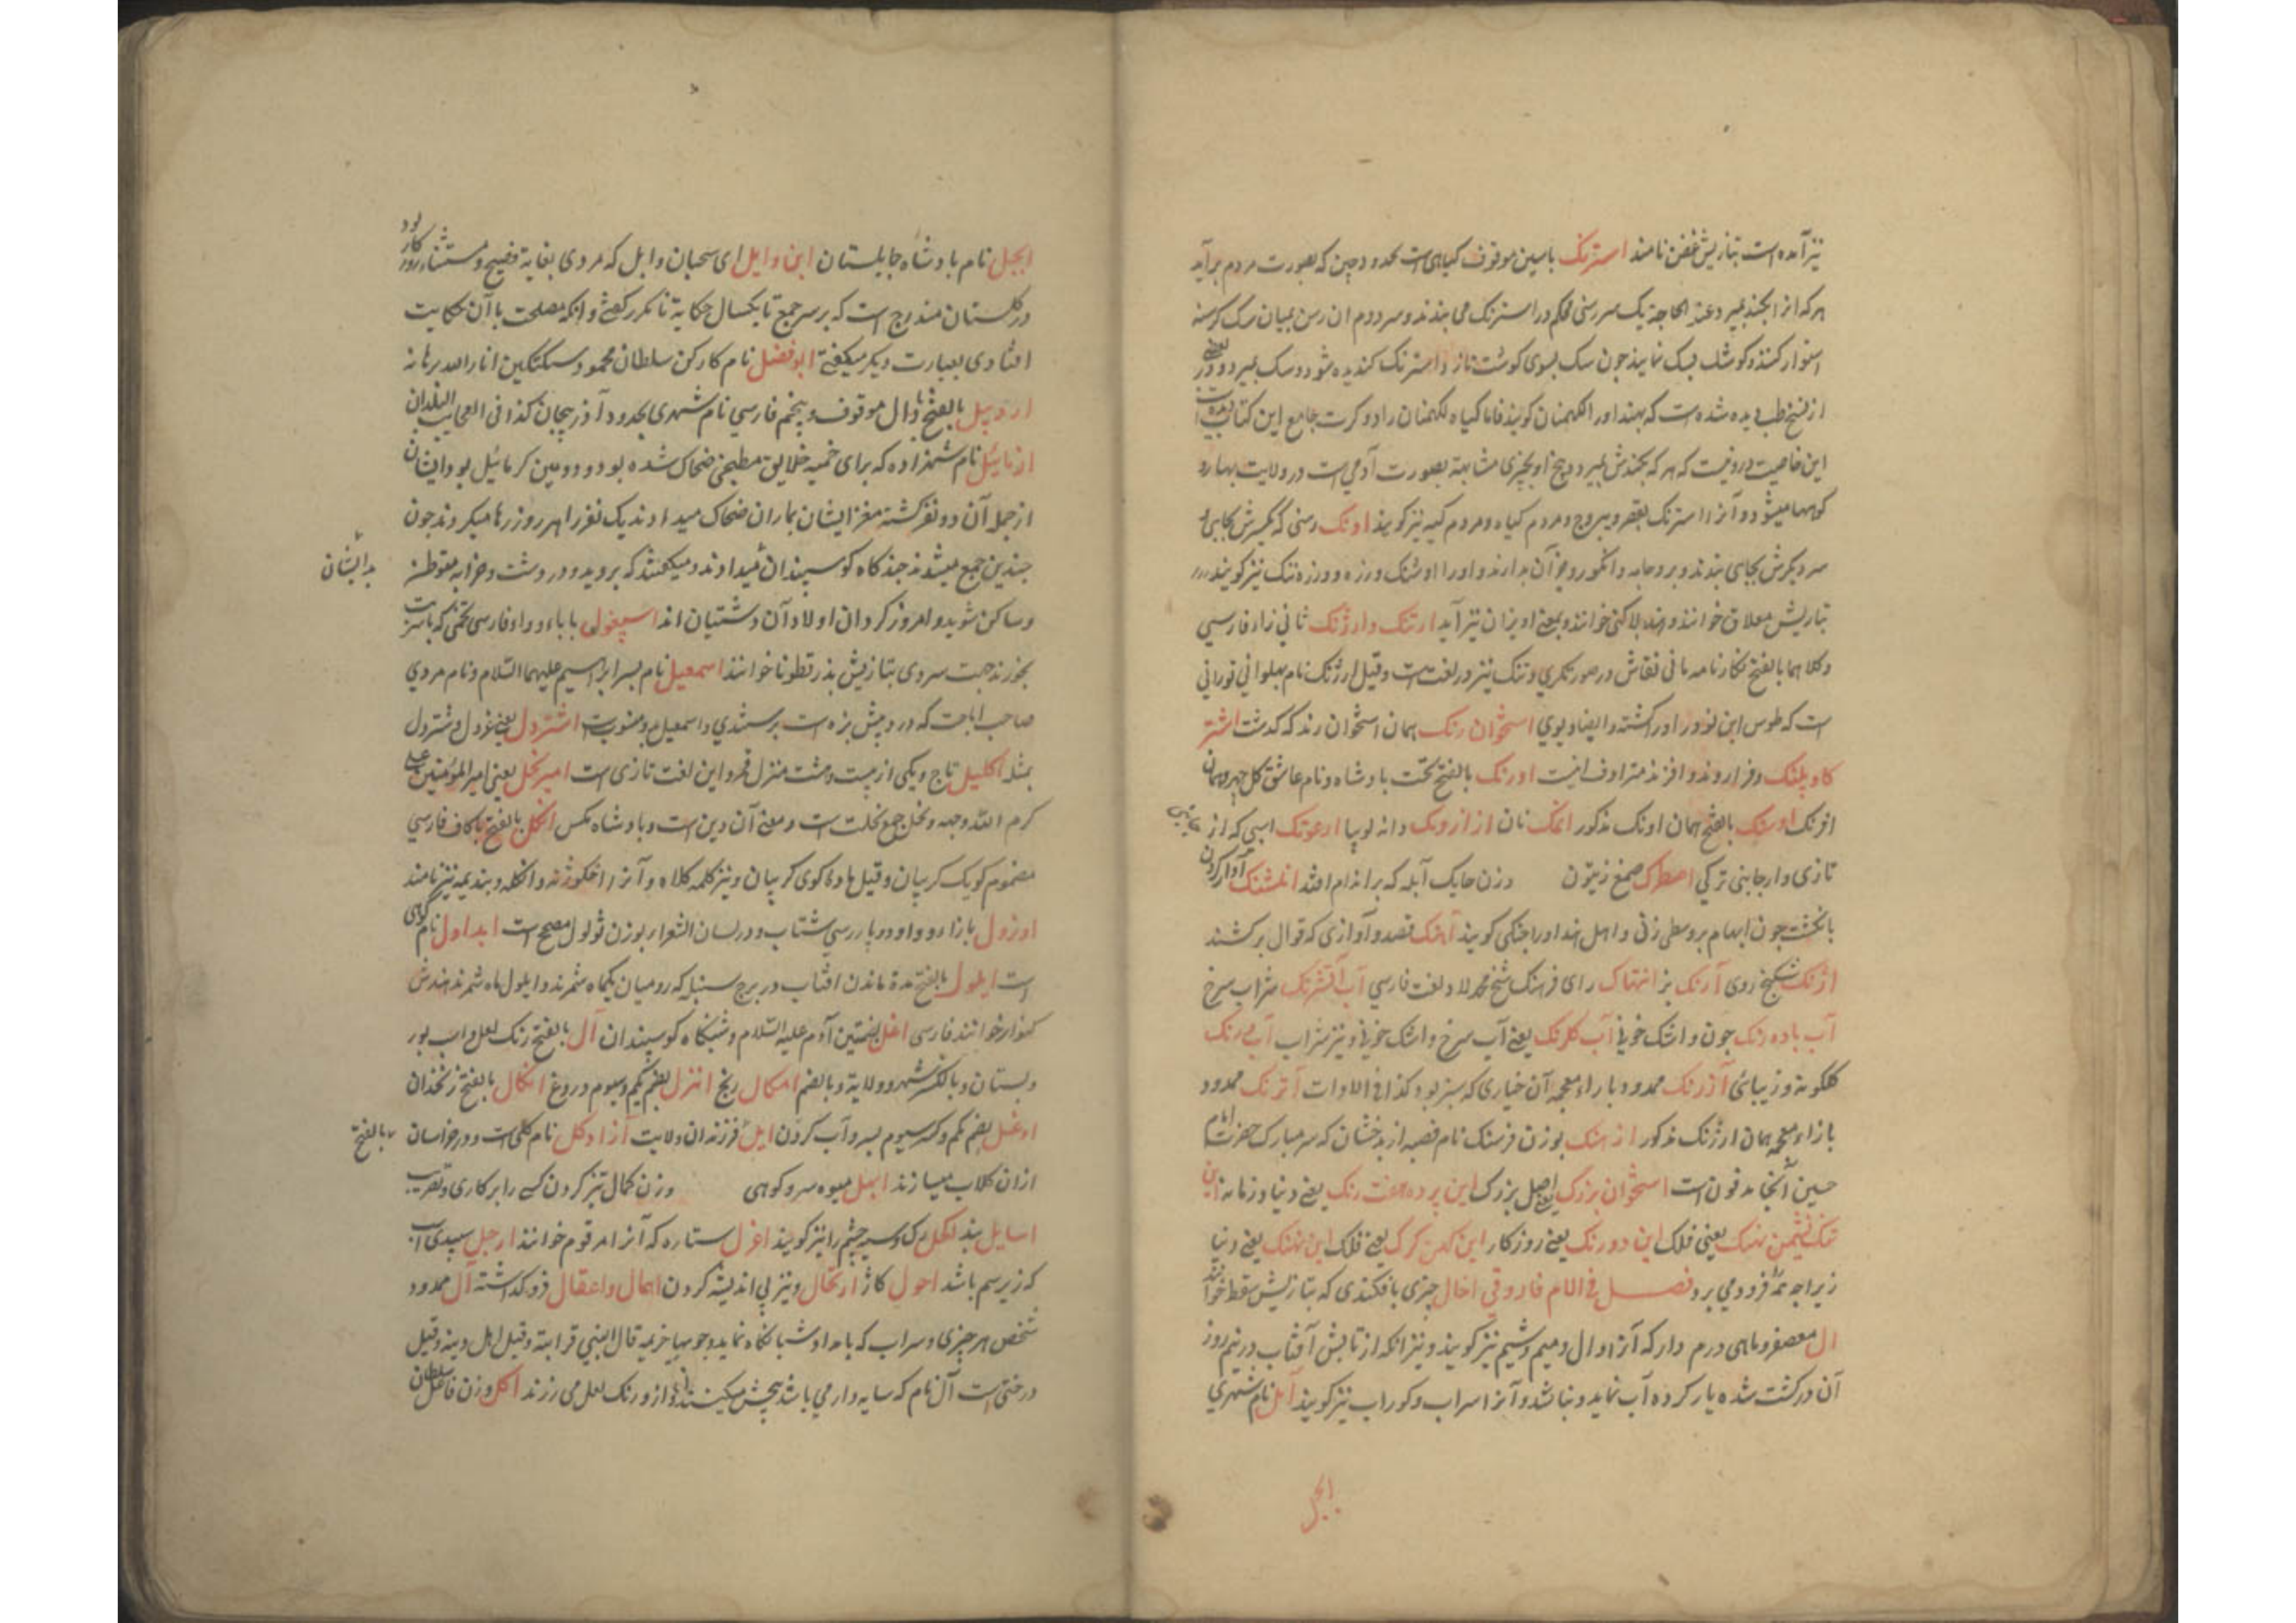 نیز آمده است بتازیش غفن نامند استرنک باسین موقوف کیاهی است بحدود چین که بصورت مردم برآید
هر که از ابخند بمیرد عند الحاجة یک سر رسنی محکم در استرنک می بندند و سر دوم ان رسن بمیان سک کرسنه
استوار کنند و کوشت سک نمایند چون سک بسوی کوشت تازد استرنک کنده شود و سک بمیرد و در بعضی
از نسخ طب دیده شده است که بهند او را لکهمنان کویند فاما کیاه لکهمنان را دو کرت جامع این کتاب دیده است
این خاصیت درو نیست که هر که بکندش بمیرد و بیخ او بچیزی مشابهة بصورت آدمی است در ولایت بهار و
کوهها میشود و آنرا استرنک یبروح و مردم کیاه و مردم کیه نیز کویند اونک رسنی که یکسرش بجایی و
سر دیکرش بجای بندند و برو جامه و انکور و جز آن بدارند و او را اوشنک و رزه و رزه تنک نیز کویند
بتازیش معلاق خوانند و هند بلاکنی خوانند و بمعنی اویزان نیز آید ارتنک و ارژنک ثانی زاء فارسی
وکلا هما بالفتح نکارنامه مانی نقاش در صورتکری و تنک نیز در لغت است و قیل ارژنک نام پهلوانی تورانی
است که طوس ابن نوذر او را کشته و ایضا دیوی استخوان رنک همان استخوان رند که کذشت اشتر
کاو پلنک زرافه مترادف اینست اورنک بالفتح تخت پادشاه و نام عاشق کلچهره همان
افرنک اوسنک بالفتح همان اونک مذکور اتمک نان از ازدنک دانه لوبیا ارغونک اسپی که از جانبی
تازی و از جانبی ترکی اصطرک صمغ زیتون وزن حایک آبله که بر اندام افتد انلشنک آواز کردن
بانکشت چون ابهام بر وسطی زنی و اهل هند او را چتکی کویند آهنک قصد و آوازی که قوال برکشند
اژنک شکنج روی آرنک نیز انتهاک رای فرهنک شیخ محمد لاد لغت فارسی آب آتشرنک شراب سرخ
آب باده رنک خون و اشک خونی آب کلرنک یعنی آب سرخ و اشک خونی و نیز شراب آب رنک
کلکونه و زیبائی آذرنک ممدود با راء معجمه آن خیاری که سبز بود کذا فی الادوات آترنک ممدود
بازاء معجمه همان ارژنک مذکور ازهنک بوزن فرسنک نام قصبه از بدخشان که سر مبارک حضرت امام
حسین آنجا مدفون است استخوان بزرک یعنی اصل بزرک این پرده هفت رنک یعنی دنیا و زمانه این
تنک نشیمن نهنک یعنی فلک این دو رنک یعنی روزکار این کهن کرک یعنی فلک این نهنک یعنی دنیا
زیرا چه همه را فرو می برد فصل فی اللام فاروقی اخال چیزی بافکندی که بتازیش سقط خوانند
ال معصفر و ماهی درم دار که آنرا وال و میم و شیم نیز کویند و نیز انکه از تابش آفتاب در نیم روز
آن در کشت شده یار کرده آب نماید و نباشد و آنرا سراب و کوراب نیز کویند آمل نام شهری
ابجل
ابجل نام پادشاه جابلستان ابن وایل ای سحبان وایل که مردی بغایة فصیح و مستثناء روزکار بود
در کلستان مندرج است که بر سر جمع تا یکسال حکایة نا مکرر کفتی و انکه مصلحت با آن حکایت
افتادی بعبارت دیکر میکفتی ابو فضل نام کارکن سلطان محمود سبکتکین انار الله برهانه
اردبیل بالفتح با دال موقوف و پنجم فارسی نام شهری بحدود آذربیجان کذا فی العجایب البلدان
ازمائیل نام شهزاده که برای خمیه خلایق مطبخی ضحاک شده بود و دومین کرمائیل بود و ایشان
از جمله آن دو نفر کشته مغز ایشان بماران ضحاک میدادند یک نفر را هر روز رها میکردند چون
چندین جمع میشدند چند کاه کوسپندان میدادند و میکفتند که بروید و در دشت و خرابه متوطن
بدایشان
و ساکن شوید و امروز کردان اولاد آن دشتیان اند اسپغول با باء و واو فارسی تخمی که با شربت
بخورند جهت سردی بتازیش بذر قطونا خوانند اسمعیل نام پسر ابراهیم علیهما السلام و نام مردی
صاحب اباحت که در دینش بزه است پرستندی و اسمعیلی بدو منسوبست اشتردل یعنی غردل و شتردل
مثله اکلیل تاج و یکی از بیست و هشت منزل قمر و این لغت تازی است امیر نحل یعنی امیر المؤمنین علی
کرم الله وجهه و نحل جمع نحلت است و معنی آن دین است و پادشاه مکس انکل بالفتح با کاف فارسی
مضموم کویک کریبان و قیل مادکی کوی کریبان و نیز کلمه کلاه و آنرا اخکوژنه و انکله و بندیمه نیز نامند
اوژول بازاء و واو دو پارسی شتاب و در لسان الشعرا بوزن ثولول مصحح است ابداول نام کوهی
است ایلول بالفتح مدة ماندن افتاب در برج سنبله که رومیان یکماه شمرند و ایلول ماه شمرند هندش
کنوار خوانند فارسی اغل بضمتین آدم علیه السلام و شبکاه کوسپندان آل بالفتح رنک لعل و اسب بور
و بستان و بالکسر شهر و ولایة و بالضم امکال رنج انزل بضم یکم و سیوم دروغ انکال بالفتح زنخدان
اوغل بضم یکم و کسر سیوم پسر و آب کردن ایل فرزندان ولایت آزاد کل نام کلی است و در خراسان بالفتح
ازان کلاب میسازند ابهل میوه سرو کوهی وزن کمال تیز کردن کسی را بر کاری و تقریب
اسایل بند اکحل رک و سیه چشم را نیز کویند اغزل ستاره که آنرا مرقوم خوانند ارجل سپیدی اسپ
که زیر سم باشد احول کاژ ارتحال و نیز بی اندیشه کردن اهمال و اعقال فرو کذاشته آل ممدود
شخص هر چیزی و سراب که بامداد و شبانکاه نماید و چوبها خیمه قال النبی قرابته و قیل اهل دینه و قیل
درختی است آل نام که سایه دار می باشد بیخش میکنند و ازو رنک لعل می رزند اکل وزن فاعل سلطان